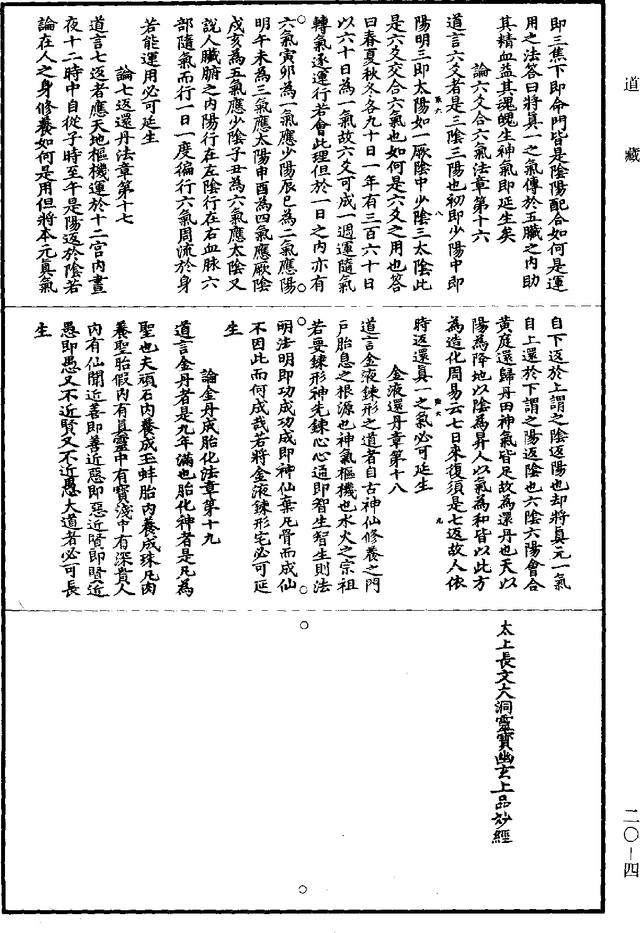 道藏
二〇—四
即三焦下即命門皆是陰陽配合如何是運
用之法答曰將真一之氣傳於五臟之内助
其精血益其魂魄生神氣即延生矣
論六爻合六氣法章第十六
道言六爻者是三陰三陽也初即少陽中即
陽明三即太陽如一厥陰中少陰三太陰此
是六爻交合六氣也如何是六爻之用也答
曰春夏秋冬各九十日一年有三百六十日
以六十日為一氣故六爻可成一週運隨氣
轉氣逐運行若會此理但於一日之内亦有
六氣寅卯為一氣應少陽辰巳為二氣應陽
明午未為三氣應太陽申酉為四氣應厥陰
戌亥為五氣應少陰子丑為六氣應太陰又
說人臟腑之内陽行在左陰行在右血脉六
部隨氣而行一日一度徧行六氣周流於身
若能運用必可延生
論七返還丹法章第十七
道言七返者應天地樞機運於十二宮内晝
夜十二時中自從子時至午是陽返於陰若
論在人之身修養如何是用但將本元真氣
自下返於上謂之陰返陽也却將真元一氣
自上還於下謂之陽返陰也六陰六陽會合
黄庭還歸丹田神氣皆足故為還丹也天以
陽為降地以陰為昇人以氣為和皆以此方
為造化周易云七日來復須是七返故人依
時返還真一之氣必可延生
金液還丹章第十八
道言金液鍊形之道者自古神仙修養之門
戶胎息之根源也神氣樞機也水火之宗祖
若要鍊形神先鍊心心通即智生智生則法
明法明即功成功成即神仙棄凡骨而成仙
不因此而何成哉若將金液鍊形宅必可延
生
論金丹成胎化法章第十九
道言金丹者是九年滿也胎化神者是凡為
聖也夫頑石内養成玉蚌胎内養成珠凡肉
養聖胎假内有真靈中有寶淺中有深貴人
内有仙聞近善即善近惡即惡近賢即賢近
愚即愚又不近賢又不近愚大道者必可長
生
太上長文大洞靈寶幽玄上品妙經